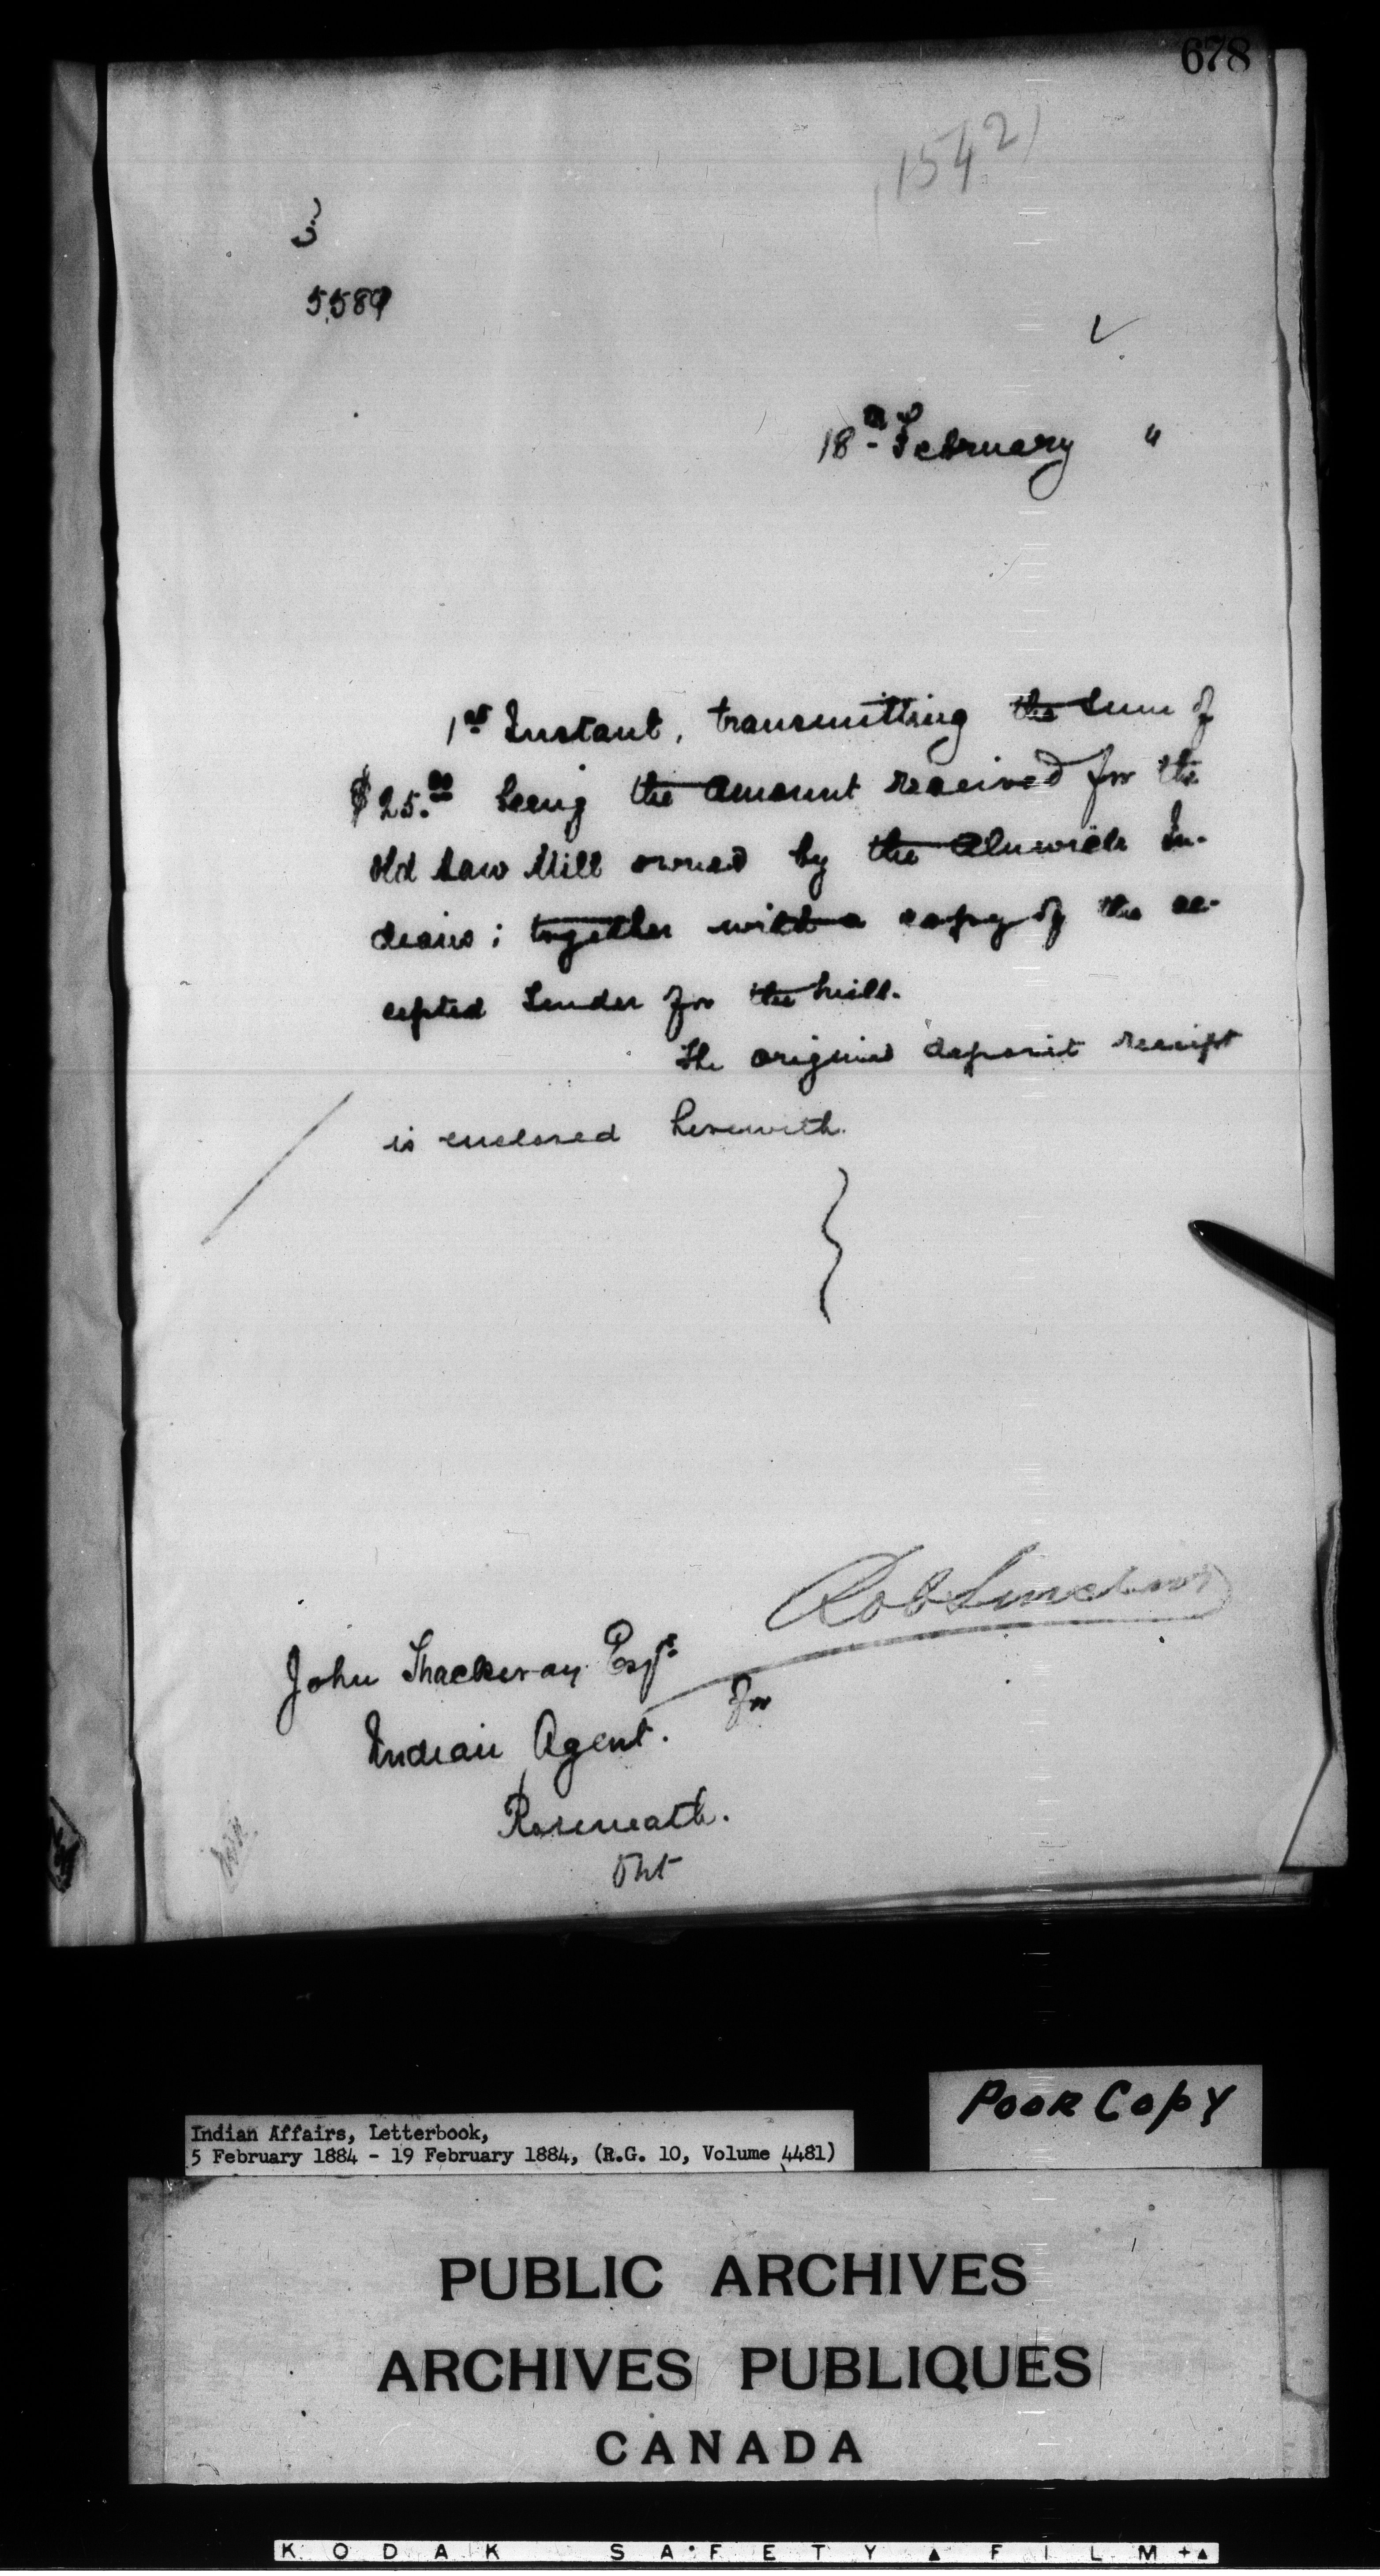 678
1542
3
5589
18th February "
1st Instant, transmitting the sum of
$25.00 being the amount received for the
old Saw Mill owned by the Alnwick In-
dians; together with a copy of the ac-
cepted tender for the mill.
The original deposit receipt
is enclosed herewith.
Rob Sinclair
John Thackeray Esqre
for
Indian Agent.
Roseneath.
Ont
POOR COPY
Indian Affairs, Letterbook,
5 February 1884 - 19 February 1884, (R.G. 10, Volume 4481)
PUBLIC ARCHIVES
ARCHIVES PUBLIQUES
CANADA
KODAK SAFETY FILM